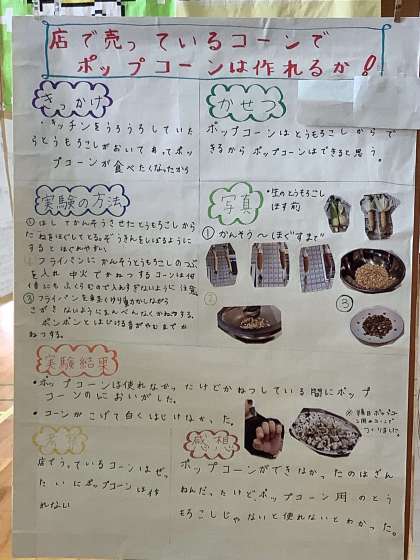 店で売っているコーンで
ポップコーンは作れるか!
きっかけ
・キッチンをうろうろしていた
らとうもろこしがおいてあってポッ
プコーンが食べたくなったから
かせつ
ポップコーンはとうもろこしからで
きるからポップコーンはできると思う。
実験の方法
①ほしてかんそうさせたとうもろこしから
たねをほぐしてとる。ぞうきんをしぼるように
するとほぐれやすい。
②フライパンにかんそうとうもろこしのつぶ
を入れ 中火でかねつする コーンは何
倍にもふくらむので入れすぎないように注意
③フライパンを
こがさないようにまんべんなくかねつする。
ポンポンとはじける音がやむまでか
ねつする。
写真
・生のとうもろこし
ほす前
①かんそう〜ほぐすまで
②
③
実験結果
・ポップコーンは作れなかったけどかねつしている間にポップ
コーンのにおいがした。
・コーンがこげて白くはじけなかった。
考察
店でうっているコーンはぜっ
たいにポップコーンは作
れない
感想
ポップコーンができなかったのはざん
ねんだったけど、ポップコーン用のとう
もろこしじゃないと使れないとわかった。
つくりました。